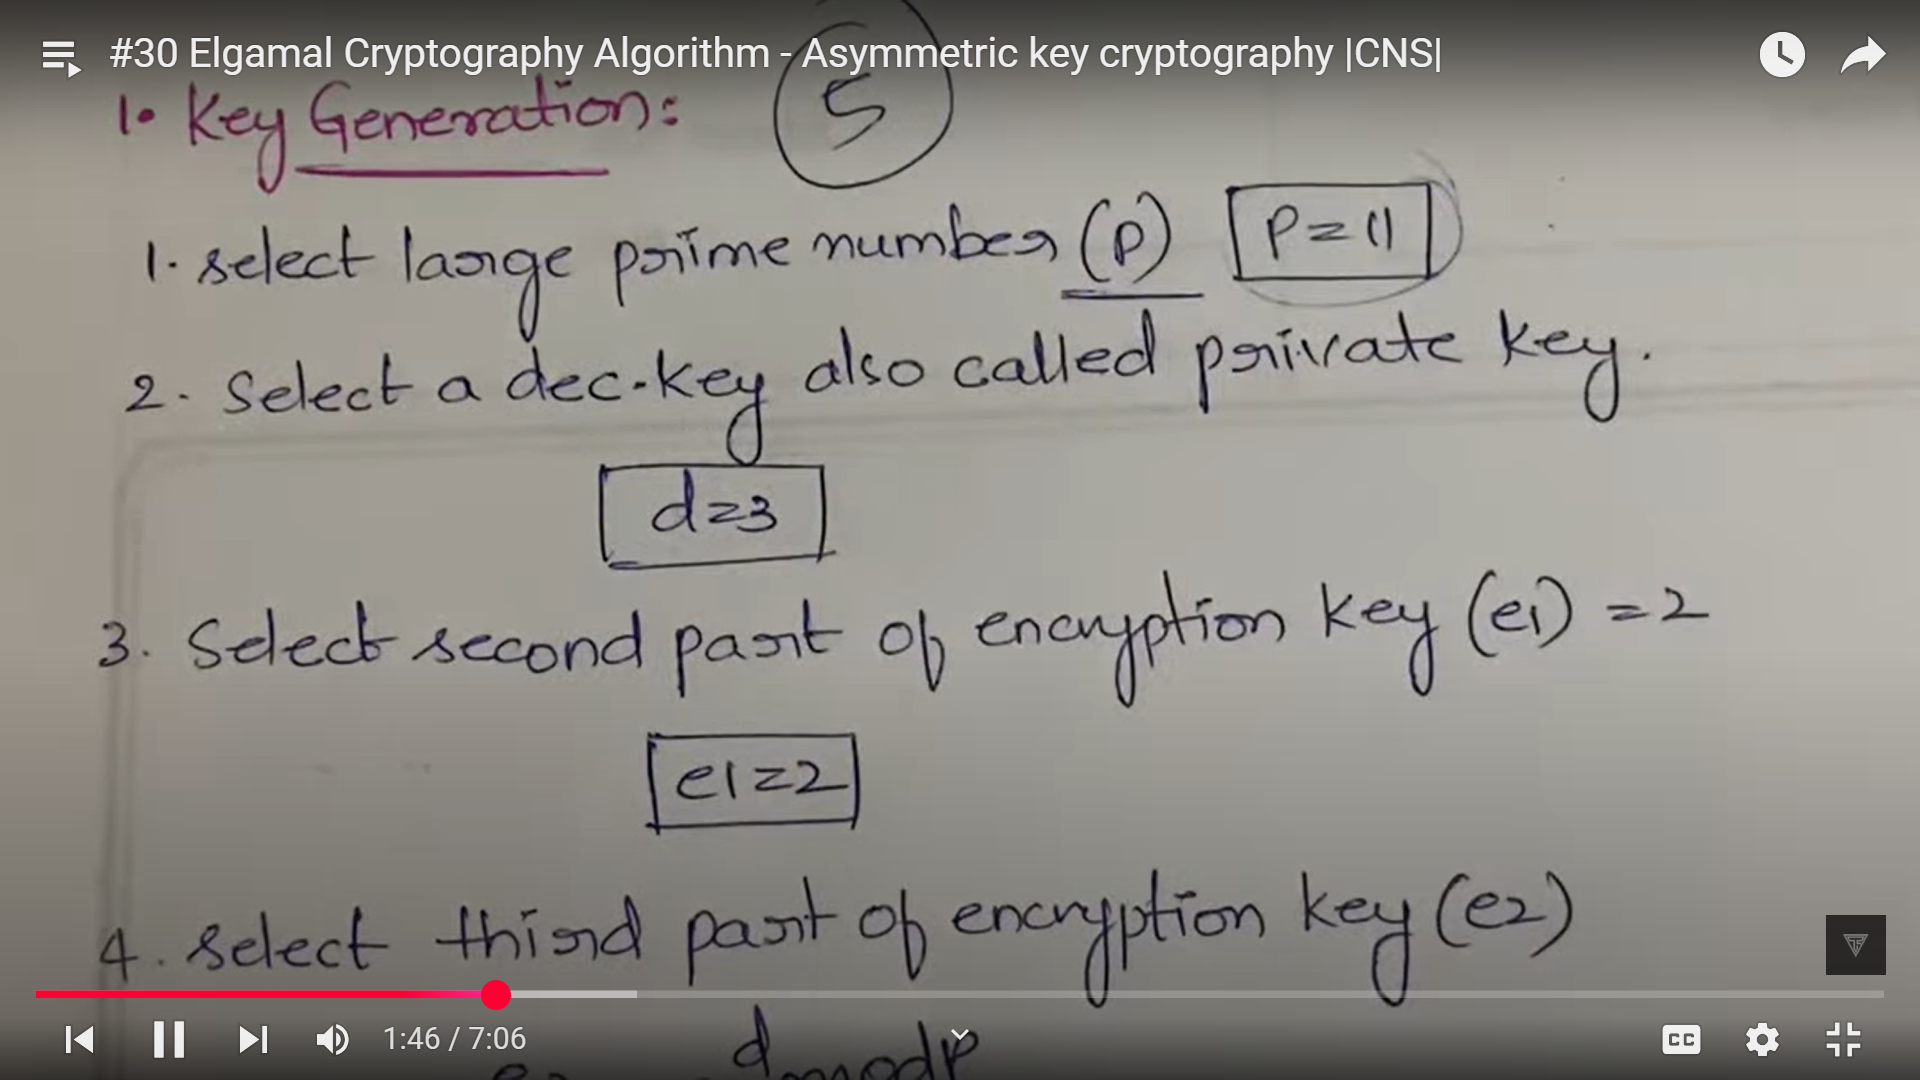 #30 Elgamal Cryptography Algorithm - Asymmetric key cryptography |CNS|
1. Key Generation: 5
1. select large prime number (P) P=11
2. Select a dec.key also called private key.
d=3
3. Select second part of encryption key (e1) =2
e1=2
4. select third part of encryption key (e2)
d mod P
1:46 / 7:06
CC